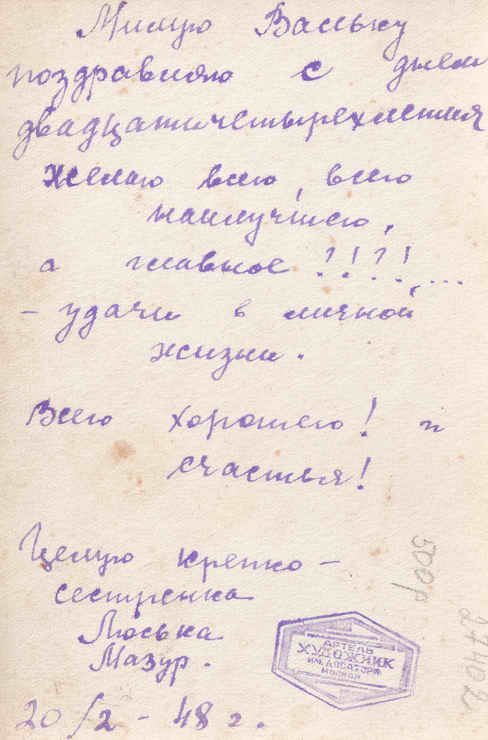 Милую Ваську
поздравляю с днем
двадцатичетырехлетия
Желаю всего, всего
наилучшего,
а главное ?!?!,...
- удачи в личной
жизни.
Всего хорошего! и
счастья!
Целую крепко -
сестренка
Люська
Мазур.
20/2 - 48 г.
АРТЕЛЬ
ХУДОЖНИК
МОСКВА
500р
27402